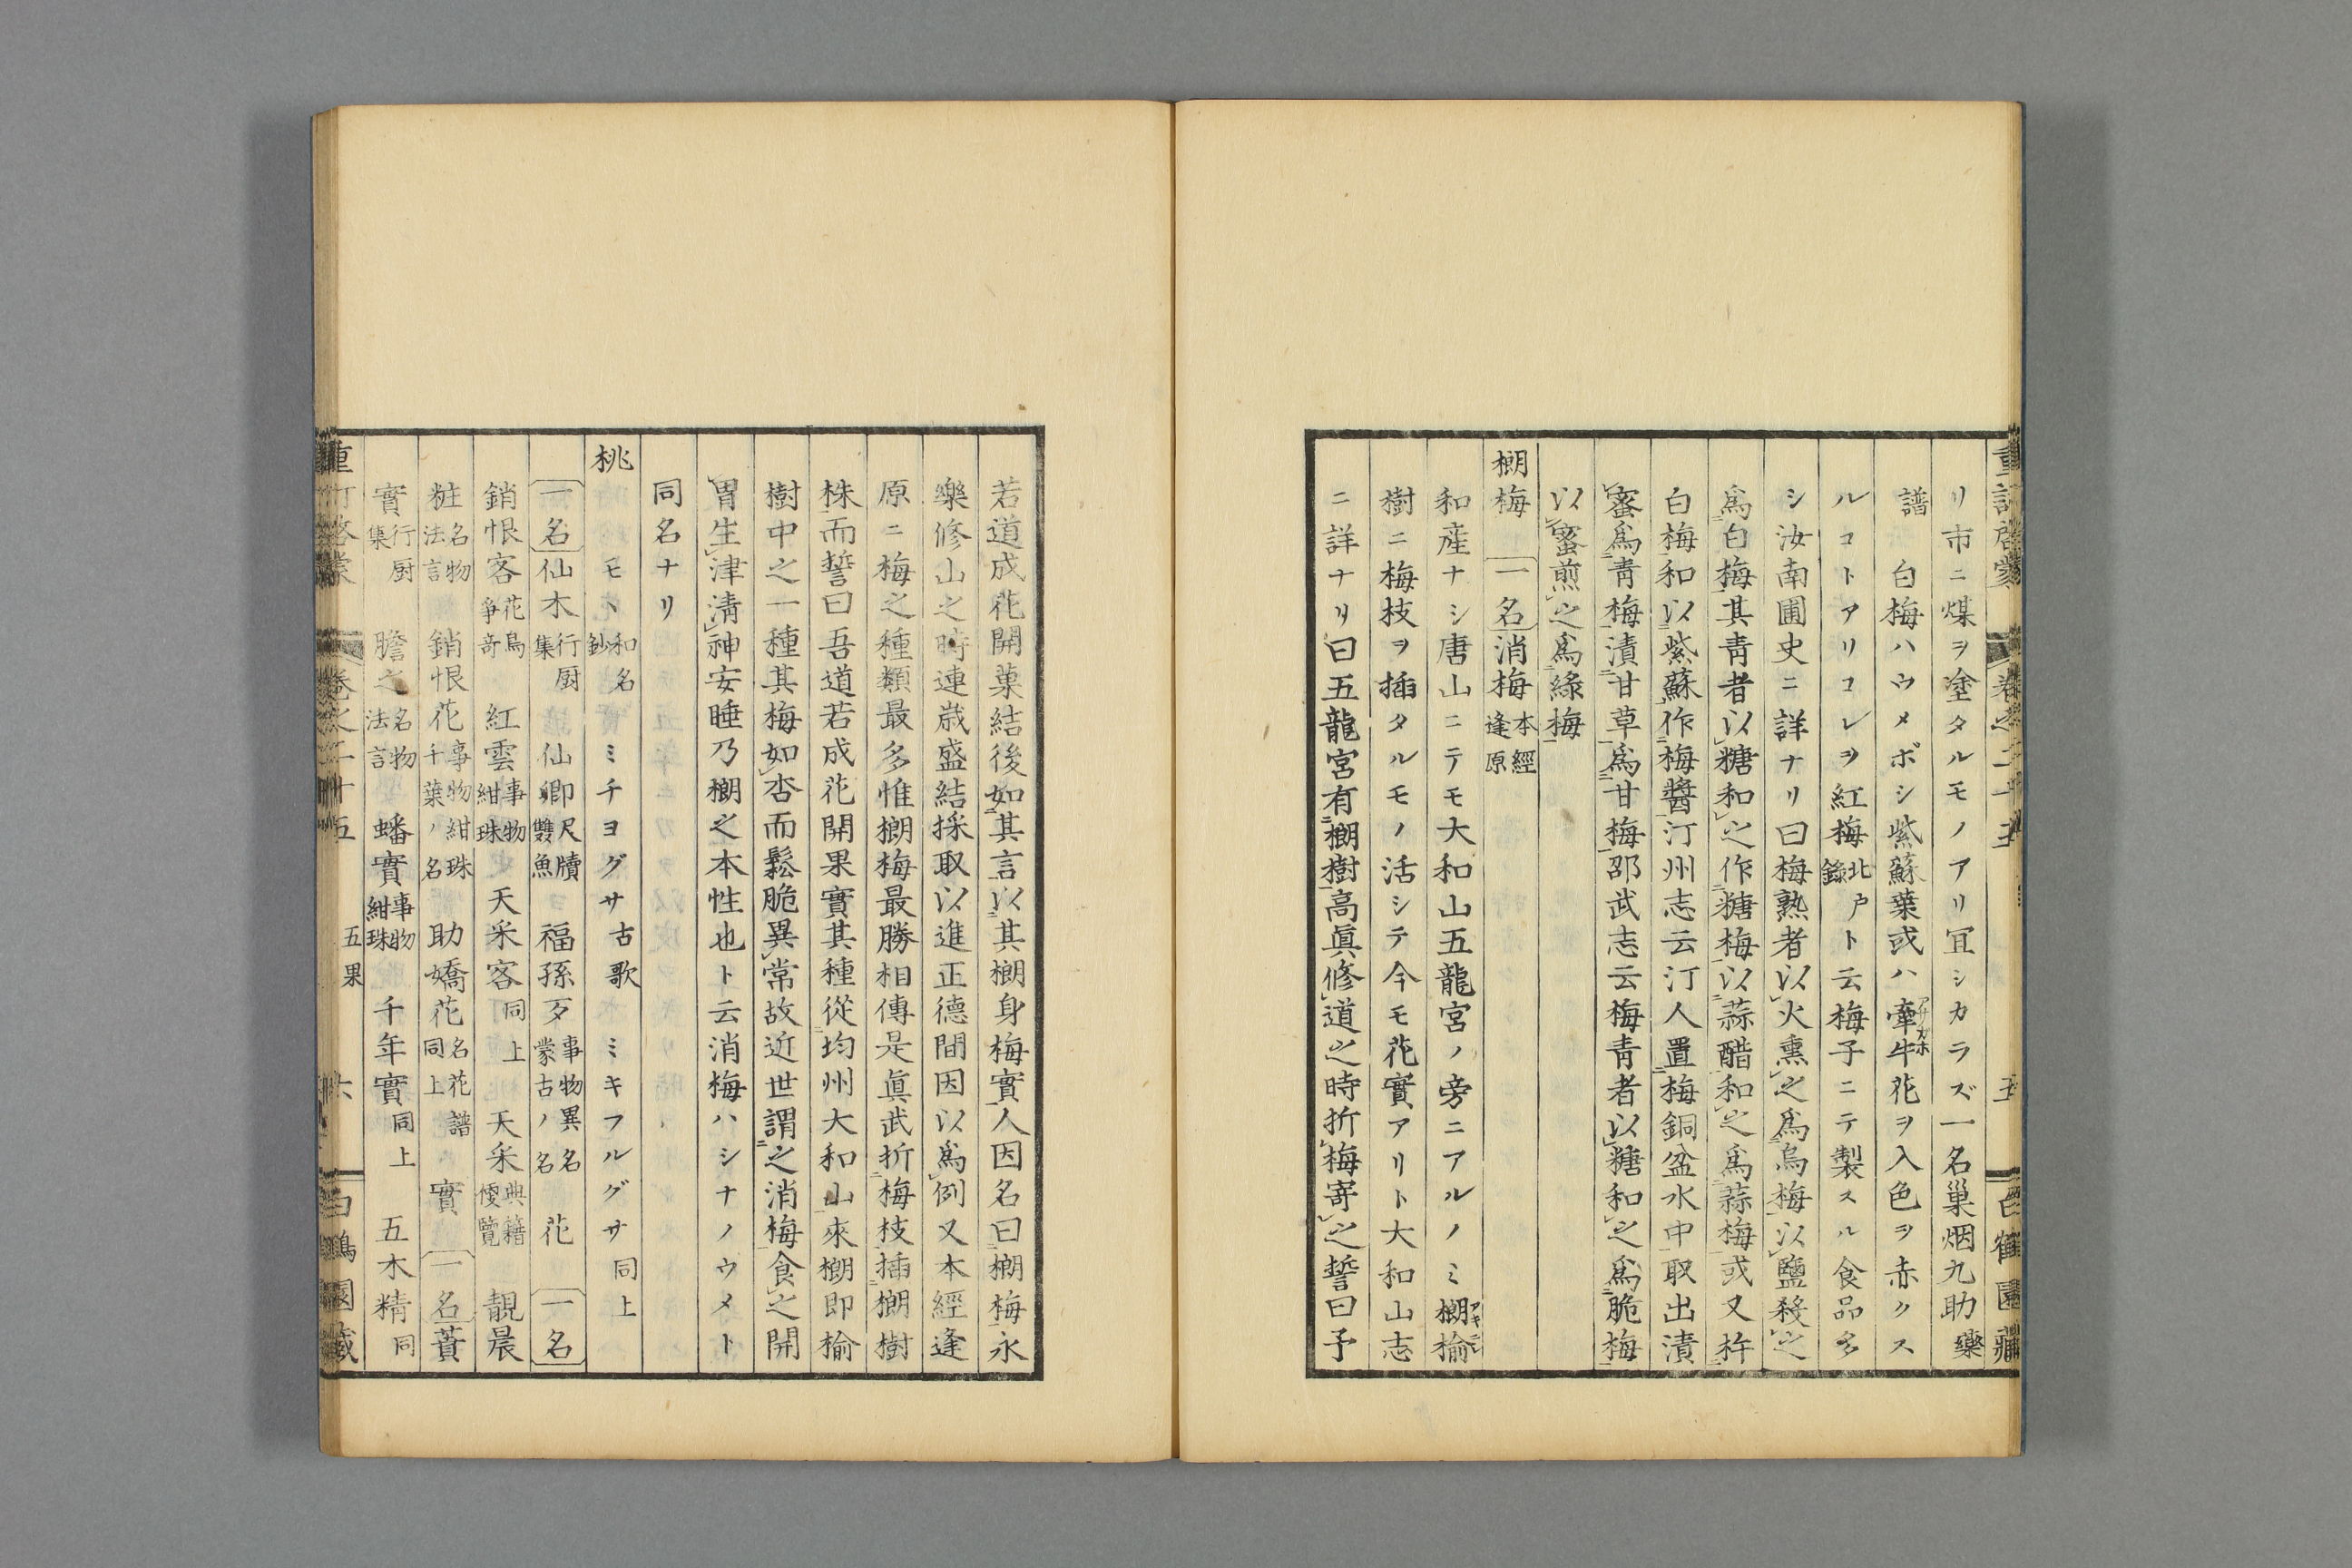 リ市ニ煤ヲ塗タルモノアリ宜シカラズ一名巣烟九助藥
譜 白梅ハウメボシ紫蘇葉或ハ牽牛花ヲ入色ヲ赤クス
ルコトアリコレヲ紅梅北戸錄ト云梅子ニテ製スル食品多
シ汝南圃史ニ詳ナリ曰梅熟者以火熏之爲烏梅以鹽殺之
爲白梅其靑者以糖和之作糖梅以蒜醋和之爲蒜梅或又杵
白梅和以紫蘇作梅醬汀州志云汀人置梅銅盆水中取出漬
蜜爲靑梅漬甘草爲甘梅邵武志云梅靑者以糖和之爲脆梅
以蜜煎之爲綠梅
榔梅 一名消梅本經逢原
和産ナシ唐山ニテモ大和山五龍宮ノ旁ニアルノミ榔榆
樹ニ梅枝ヲ插タルモノ活シテ今モ花實アリト大和山志
ニ詳ナリ曰五龍宮有榔樹高眞修道之時折梅寄之誓曰予
若道成花開菓結後如其言以其榔身梅實人因名曰榔梅永
樂修山之時連歳盛結採取以進正德間因以爲例又本經逢
原ニ梅之種類最多惟榔梅最勝相傳是眞武折梅枝插榔樹
株而誓曰吾道若成花開果實其種從均州大和山來榔即榆
樹中之一種其梅如杏而鬆脆異常故近世謂之消梅食之開
胃生津淸神安睡乃榔之本性也ト云消梅ハシナノウメト
同名ナリ
桃 モヽ和名鈔 ミチヨグサ古歌 ミキフルグサ同上
一名仙木行厨集 仙卿尺牘雙魚 福孫歹事物異名蒙古ノ名 花 一名
銷恨客花鳥爭奇 紅雲事物紺珠 天采客同上 天采典籍便覽 靚晨
粧名物法言 銷恨花事物紺珠千葉ノ名 助嬌花名花譜同上 實 一名蕡
實行厨集 膽之名物法言 蟠實事物紺珠 千年實同上 五木精同
五果 六